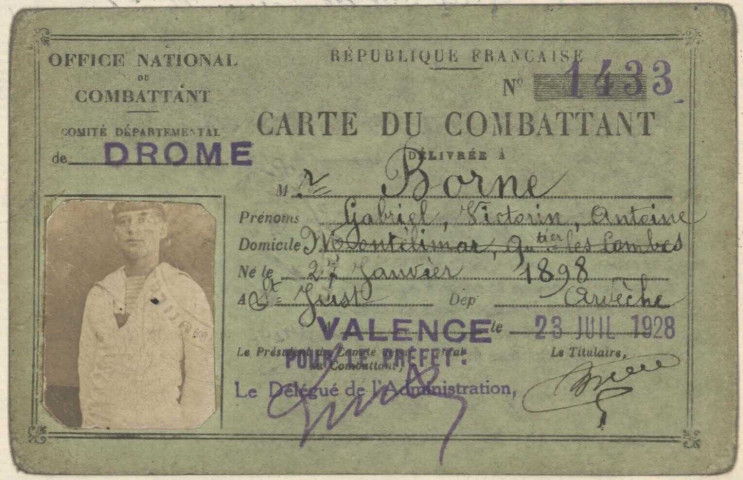 OFFICE NATIONAL
DU
COMBATTANT
COMITÉ DÉPARTEMENTAL
de DROME
RÉPUBLIQUE FRANÇAISE
N° 1433
CARTE DU COMBATTANT
DÉLIVRÉE À
M r Borne
Prénoms Gabriel, Victorin, Antoine
Domicile Montélimar, Qu tier les Combes
Né le 27 Janvier 1898
A St Just Dép Ardèche
VALENCE le 23 JUIL 1928
Le Président du Comité
du Combattant,
POUR LE PRÉFET:
Le Délégué de l'Administration,
Le Titulaire,
Borne